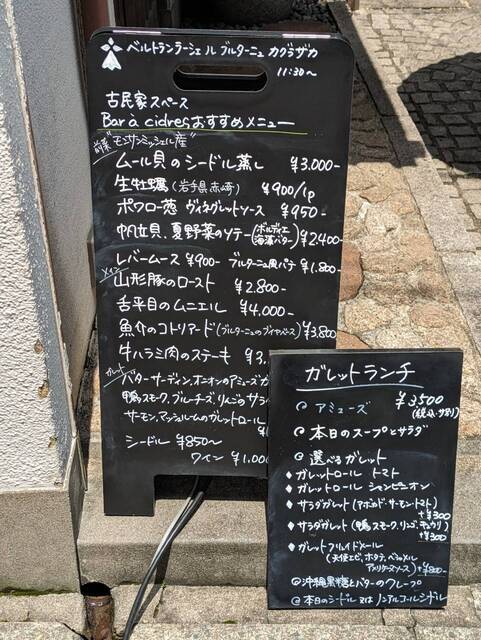 ベルトランラーシェル ブルターニュ カグラザカ
11:30〜
古民家スペース
Bar à cidresおすすめメニュー
前菜 "モンサンミッシェル産"
ムール貝のシードル蒸し ¥3,000-
生牡蠣(岩手県赤崎) ¥900/1p
ポワロー葱 ヴィネグレットソース ¥950-
帆立貝、夏野菜のソテー(ボルディエ海藻バター) ¥2,400-
レバームース ¥900- ブルターニュ風パテ ¥1,800-
メイン
山形豚のロースト ¥2,800-
舌平目のムニエル ¥4,000-
魚介のコトリアード(ブルターニュのブイヤベース) ¥3,800
牛ハラミ肉のステーキ ¥3,
ガレット
バターサーディン、オニオンのアミューズガ
鴨スモーク、ブルーチーズ、りんごのサラダ
サーモン、マッシュルームのガレットロール
シードル ¥850〜
ワイン ¥1,000
ガレットランチ
¥3,500
@ アミューズ
@ 本日のスープとサラダ
@ 選べるガレット
♦ ガレットロール トマト
♦ ガレットロール シャンピニオン
♦ サラダガレット(アボカド・サーモン・トマト)
+¥300
♦ サラダガレット(鴨スモーク、リンゴ、
+¥300
♦ ガレットフリュイドメール
(天使エビ、ホタテ、ベシャメル
アメリケーヌソース) +¥800-
@ 沖縄黒糖とバターのクレープ
@ 本日のシードル 又は ノンアルコールシードル